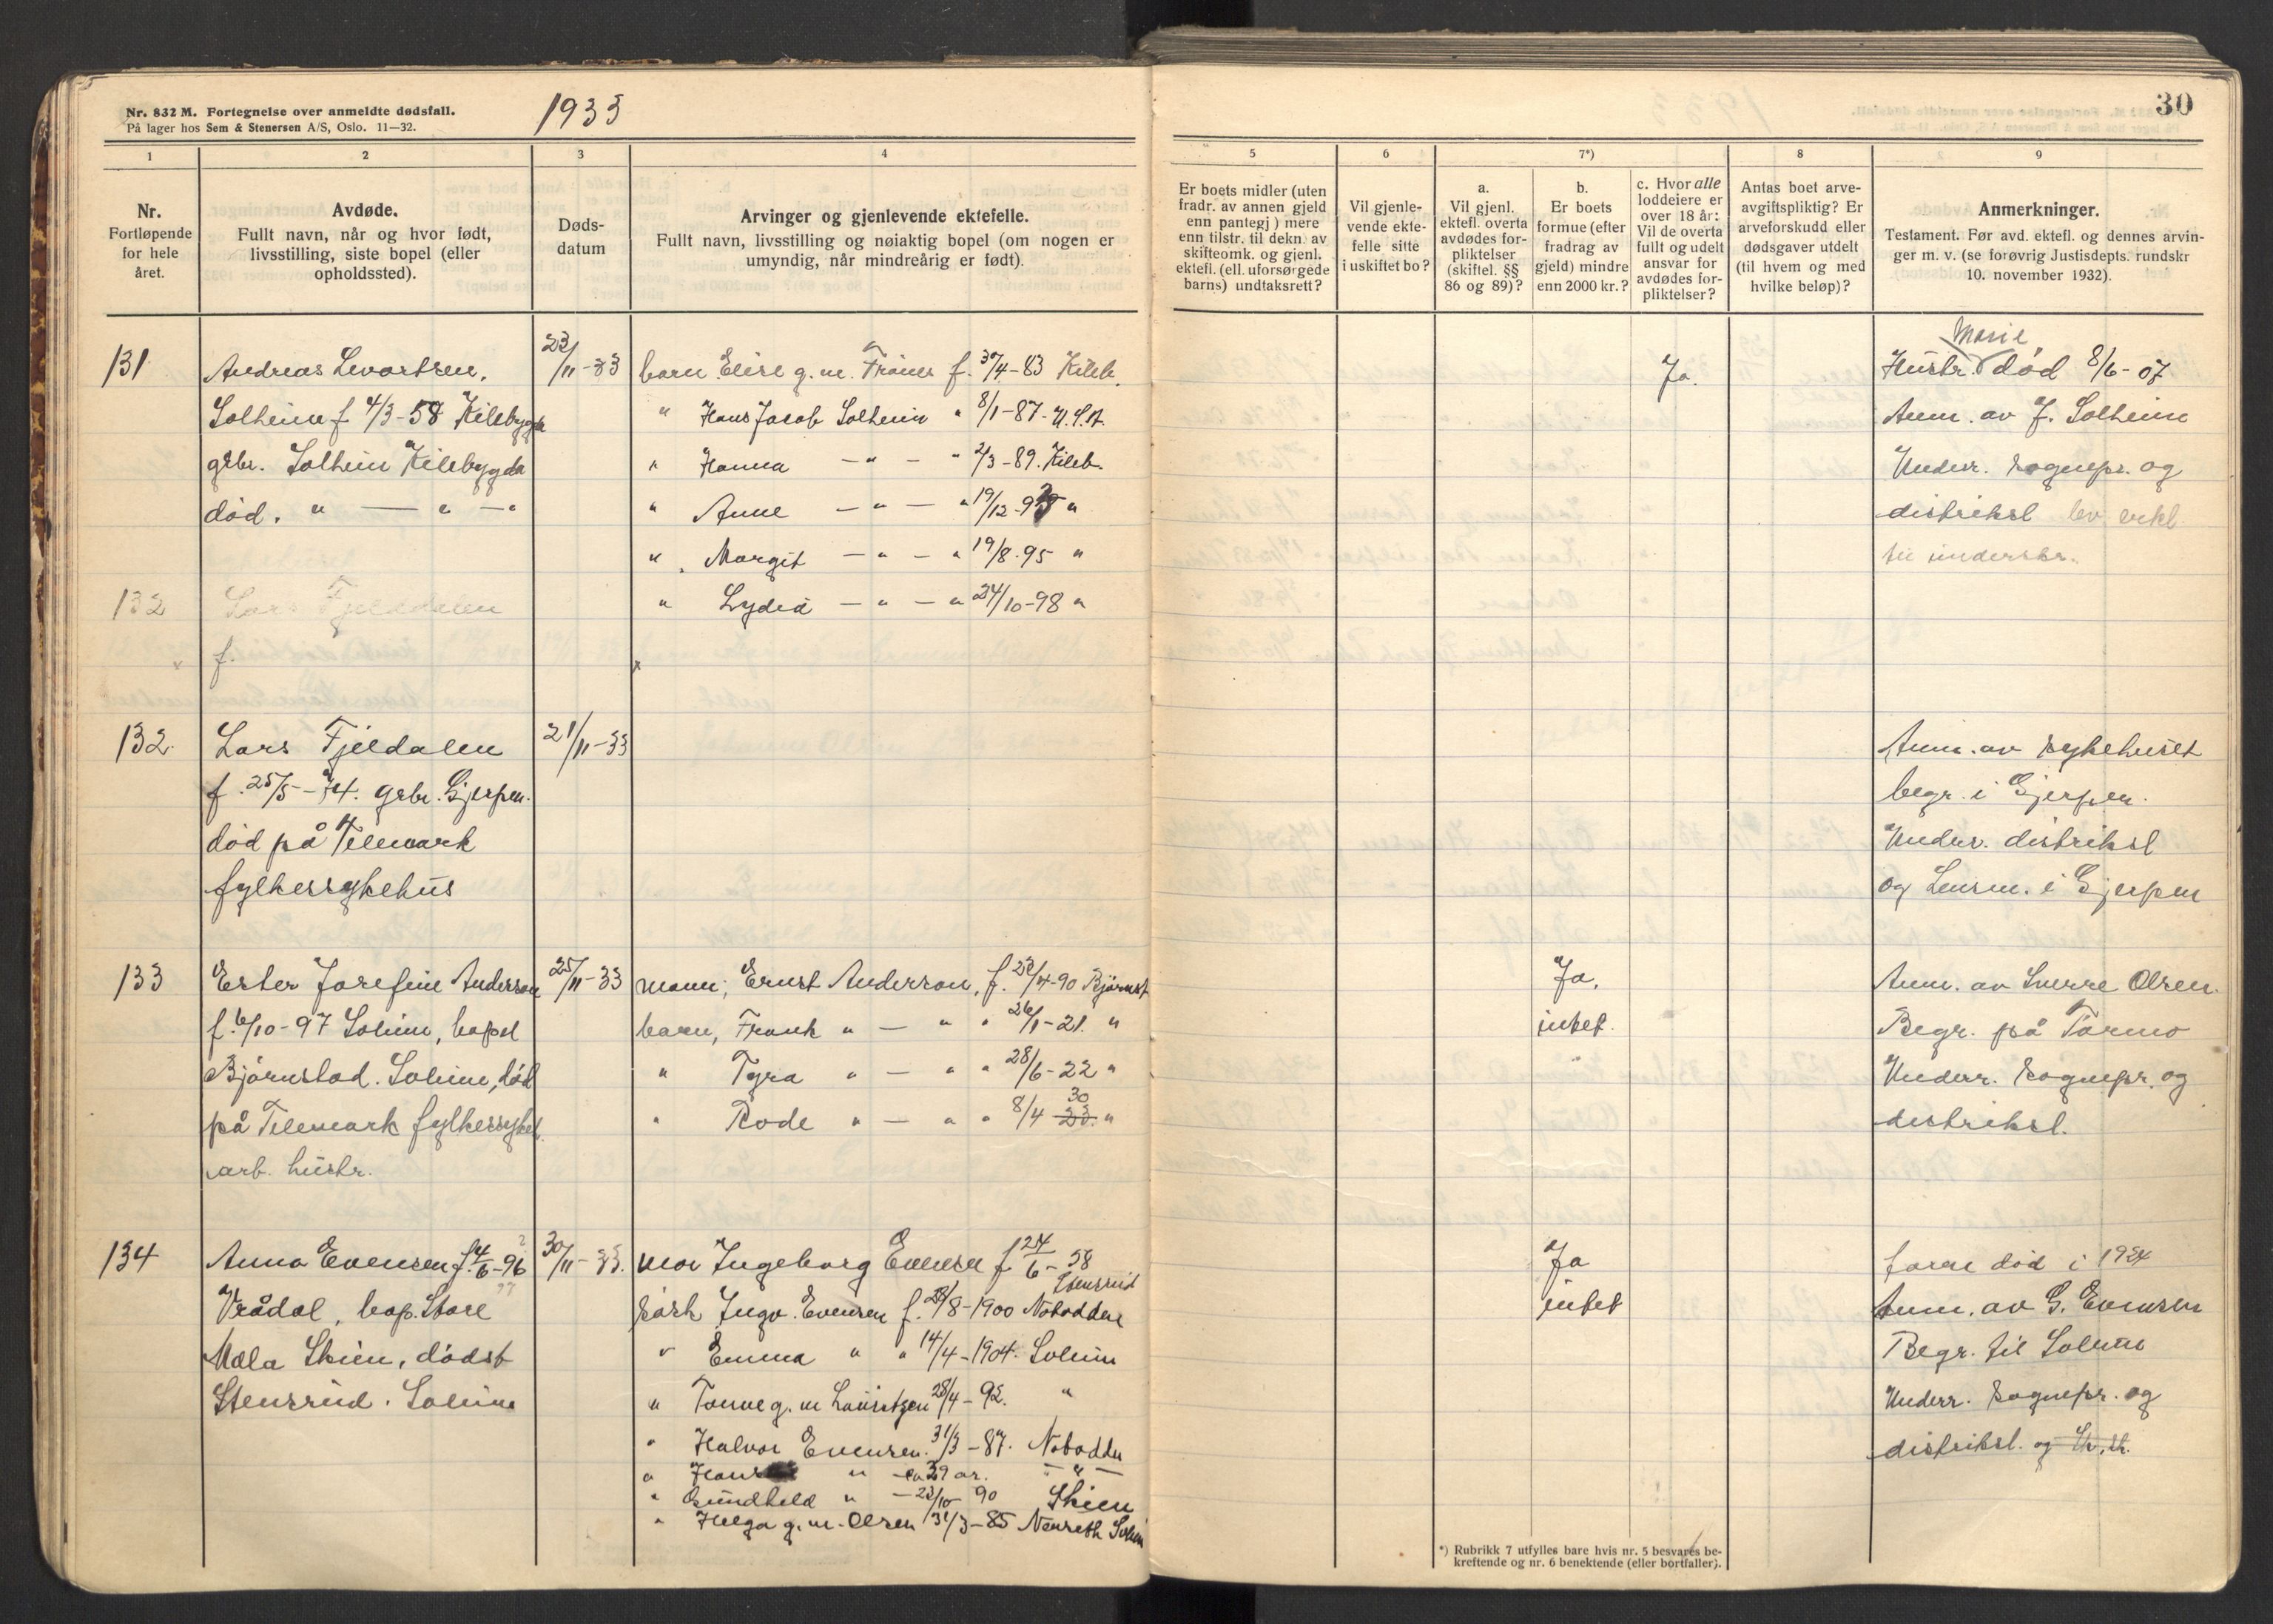 Nr. 832 M. Fortegnelse over anmeldte dødsfall.
På lager hos Sem & Stenersen A/S, Oslo. 11—32.
1933
30
1 2 3 4 5 6 7*) 8 9
Nr.
Fortløpende
for hele
året.
Avdøde.
Fullt navn, når og hvor født,
livsstilling, siste bopel (eller
opholdssted).
Døds-
datum
Arvinger og gjenlevende ektefelle.
Fullt navn, livsstilling og nøiaktig bopel (om nogen er
umyndig, når mindreårig er født).
Er boets midler (uten
fradr. av annen gjeld
enn pantegj) mere
enn tilstr. til dekn. av
skifteomk. og gjenl.
ektefl. (ell. uforsørgede
barns) undtaksrett?
Vil gjenle-
vende ekte-
felle sitte
i uskiftet bo?
a.
Vil gjenl.
ektefl. overta
avdødes for-
pliktelser
(skiftel. §§
86 og 89)?
b.
Er boets
formue (efter
fradrag av
gjeld) mindre
enn 2000 kr.?
c. Hvor alle
loddeiere er
over 18 år:
Vil de overta
fullt og udelt
ansvar for
avdødes for-
pliktelser?
Antas boet arve-
avgiftspliktig? Er
arveforskudd eller
dødsgaver utdelt
(til hvem og med
hvilke beløp)?
Anmerkninger.
Testament. Før avd. ektefl. og dennes arvin-
ger m. v. (se forøvrig Justisdepts. rundskr
10. november 1932).
131
Andreas
Solheim f 4/3-58 Kilebygda
grbr. Solheim Kilebygda
død. " — " — "
23/11-33
barn Elise g. m. f. 30/4-83 Kileb.
" Hans Jacob Solheim " 8/1-87- U.S.A.
" Hanna — " — " 2/3-89. Kileb.
" Anne — " — " 19/12- "
" Margit — " — " 19/8-95 "
" Lydia — " — " 24/10-98 "
Ja.
Marie
Hustr. død 8/6-07
Anm. av J. Solheim
Underr. sognepr. og
distriksl lev. erkl.
til underskr.
132
Lars Fjelddalen
f.
132.
Lars Fjeldalen
f. 25/5-74. grbr. Gjerpen.
død på Telemark
fylkessykehus
21/11-33
Anm. av sykehuset
begr. i Gjerpen.
Underr. distriksl
og Lensm. i Gjerpen
133
Ester Josefine Anderson
f. 6/10-97 Solum, bopel
Bjørnstad. Solum, død
på Telemark fylkessykeh.
arb. hustr.
25/11-33
mann, Ernst Anderson, f. 23/4-90 Bjørnst
barn, Frank " — " " 26/1-21. "
" Tyra " — " " 28/6-22 "
30
" Rode " — " " 8/4 23. "
Ja,
intet.
Anm. av Sverre Olsen.
Begr. på
Underr. sognepr. og
distriksl.
134
Anna Evensen f. 4/6-96
Vrådal, bop. Store
Mæla Skien, dødst
Stensrud. Solum
30/11-33.
mor Ingeborg Evensen f 24/6-58
Stensrud
søsk Ingv. Evensen f. 28/8-1900 Notodden
" Emma " " 14/4-1904. Solum
" g. m Lauritzen 28/4-92. "
" Halvor Evensen. 31/3-87. Notodden
" Hans " - ca 39 år. — " —
" Gundhild " — 23/10 90 Skien
" Helga g. m. Olsen 31/3-85 Solum
Ja
intet
faren død i 1924
Anm. av G. Evensen
Begr. til Solum
Underr. sognepr. og
distriksl. og
*) Rubrikk 7 utfylles bare hvis nr. 5 besvares be-
kreftende og nr. 6 benektende (eller bortfaller).